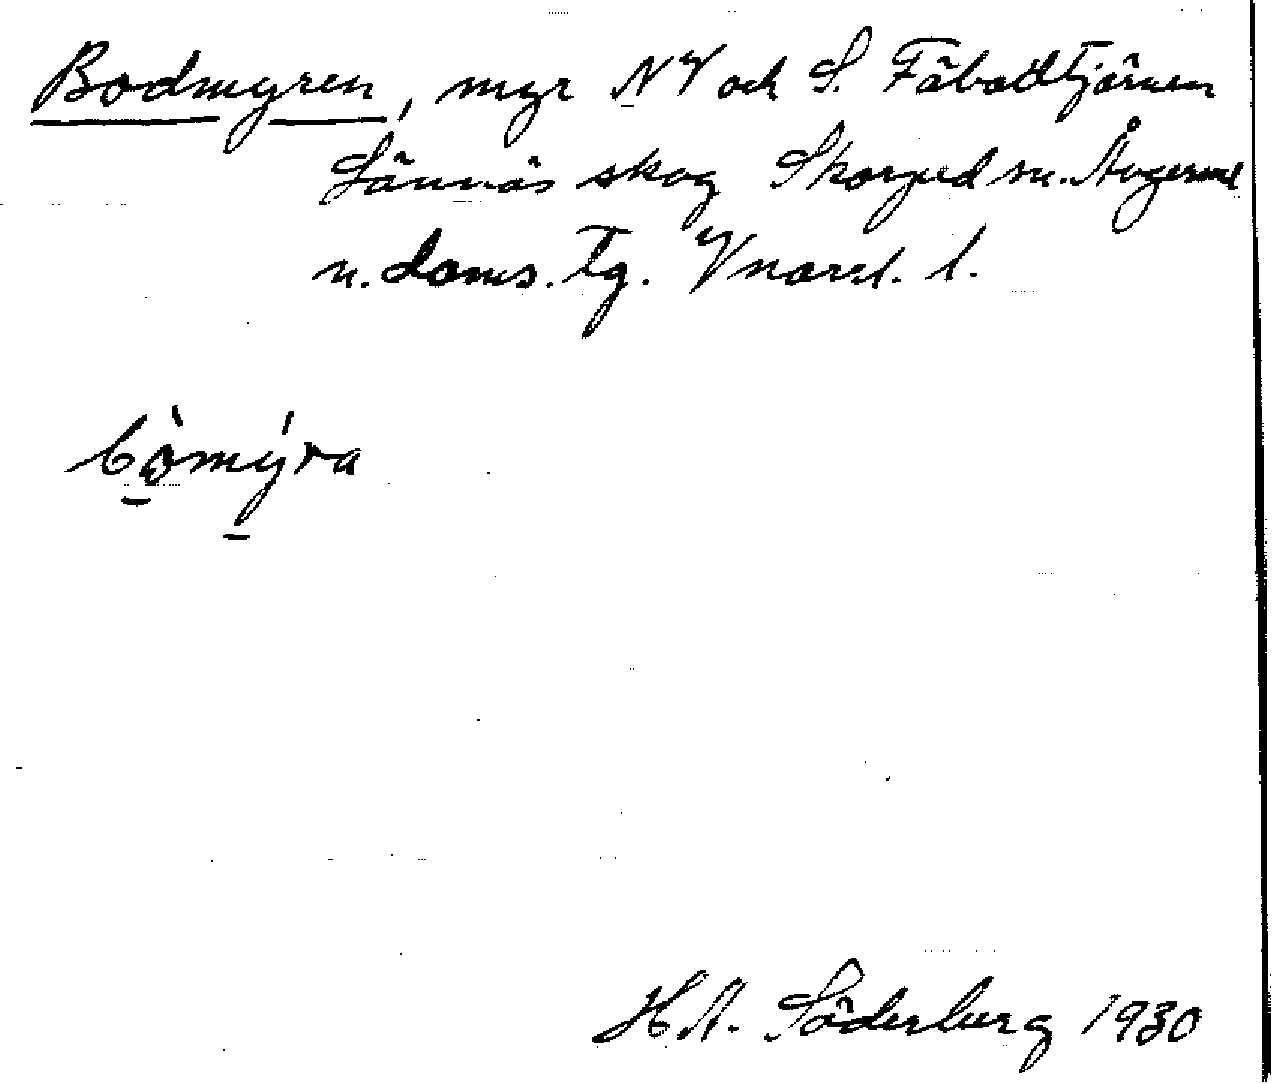 Bodmyren, myr NV och S. Fäbodtjärnen
Lännäs skog Skorped sn. Ångerml
n. doms. tg. Vnorrl. l.
bòmýra
H.A. Söderberg 1930